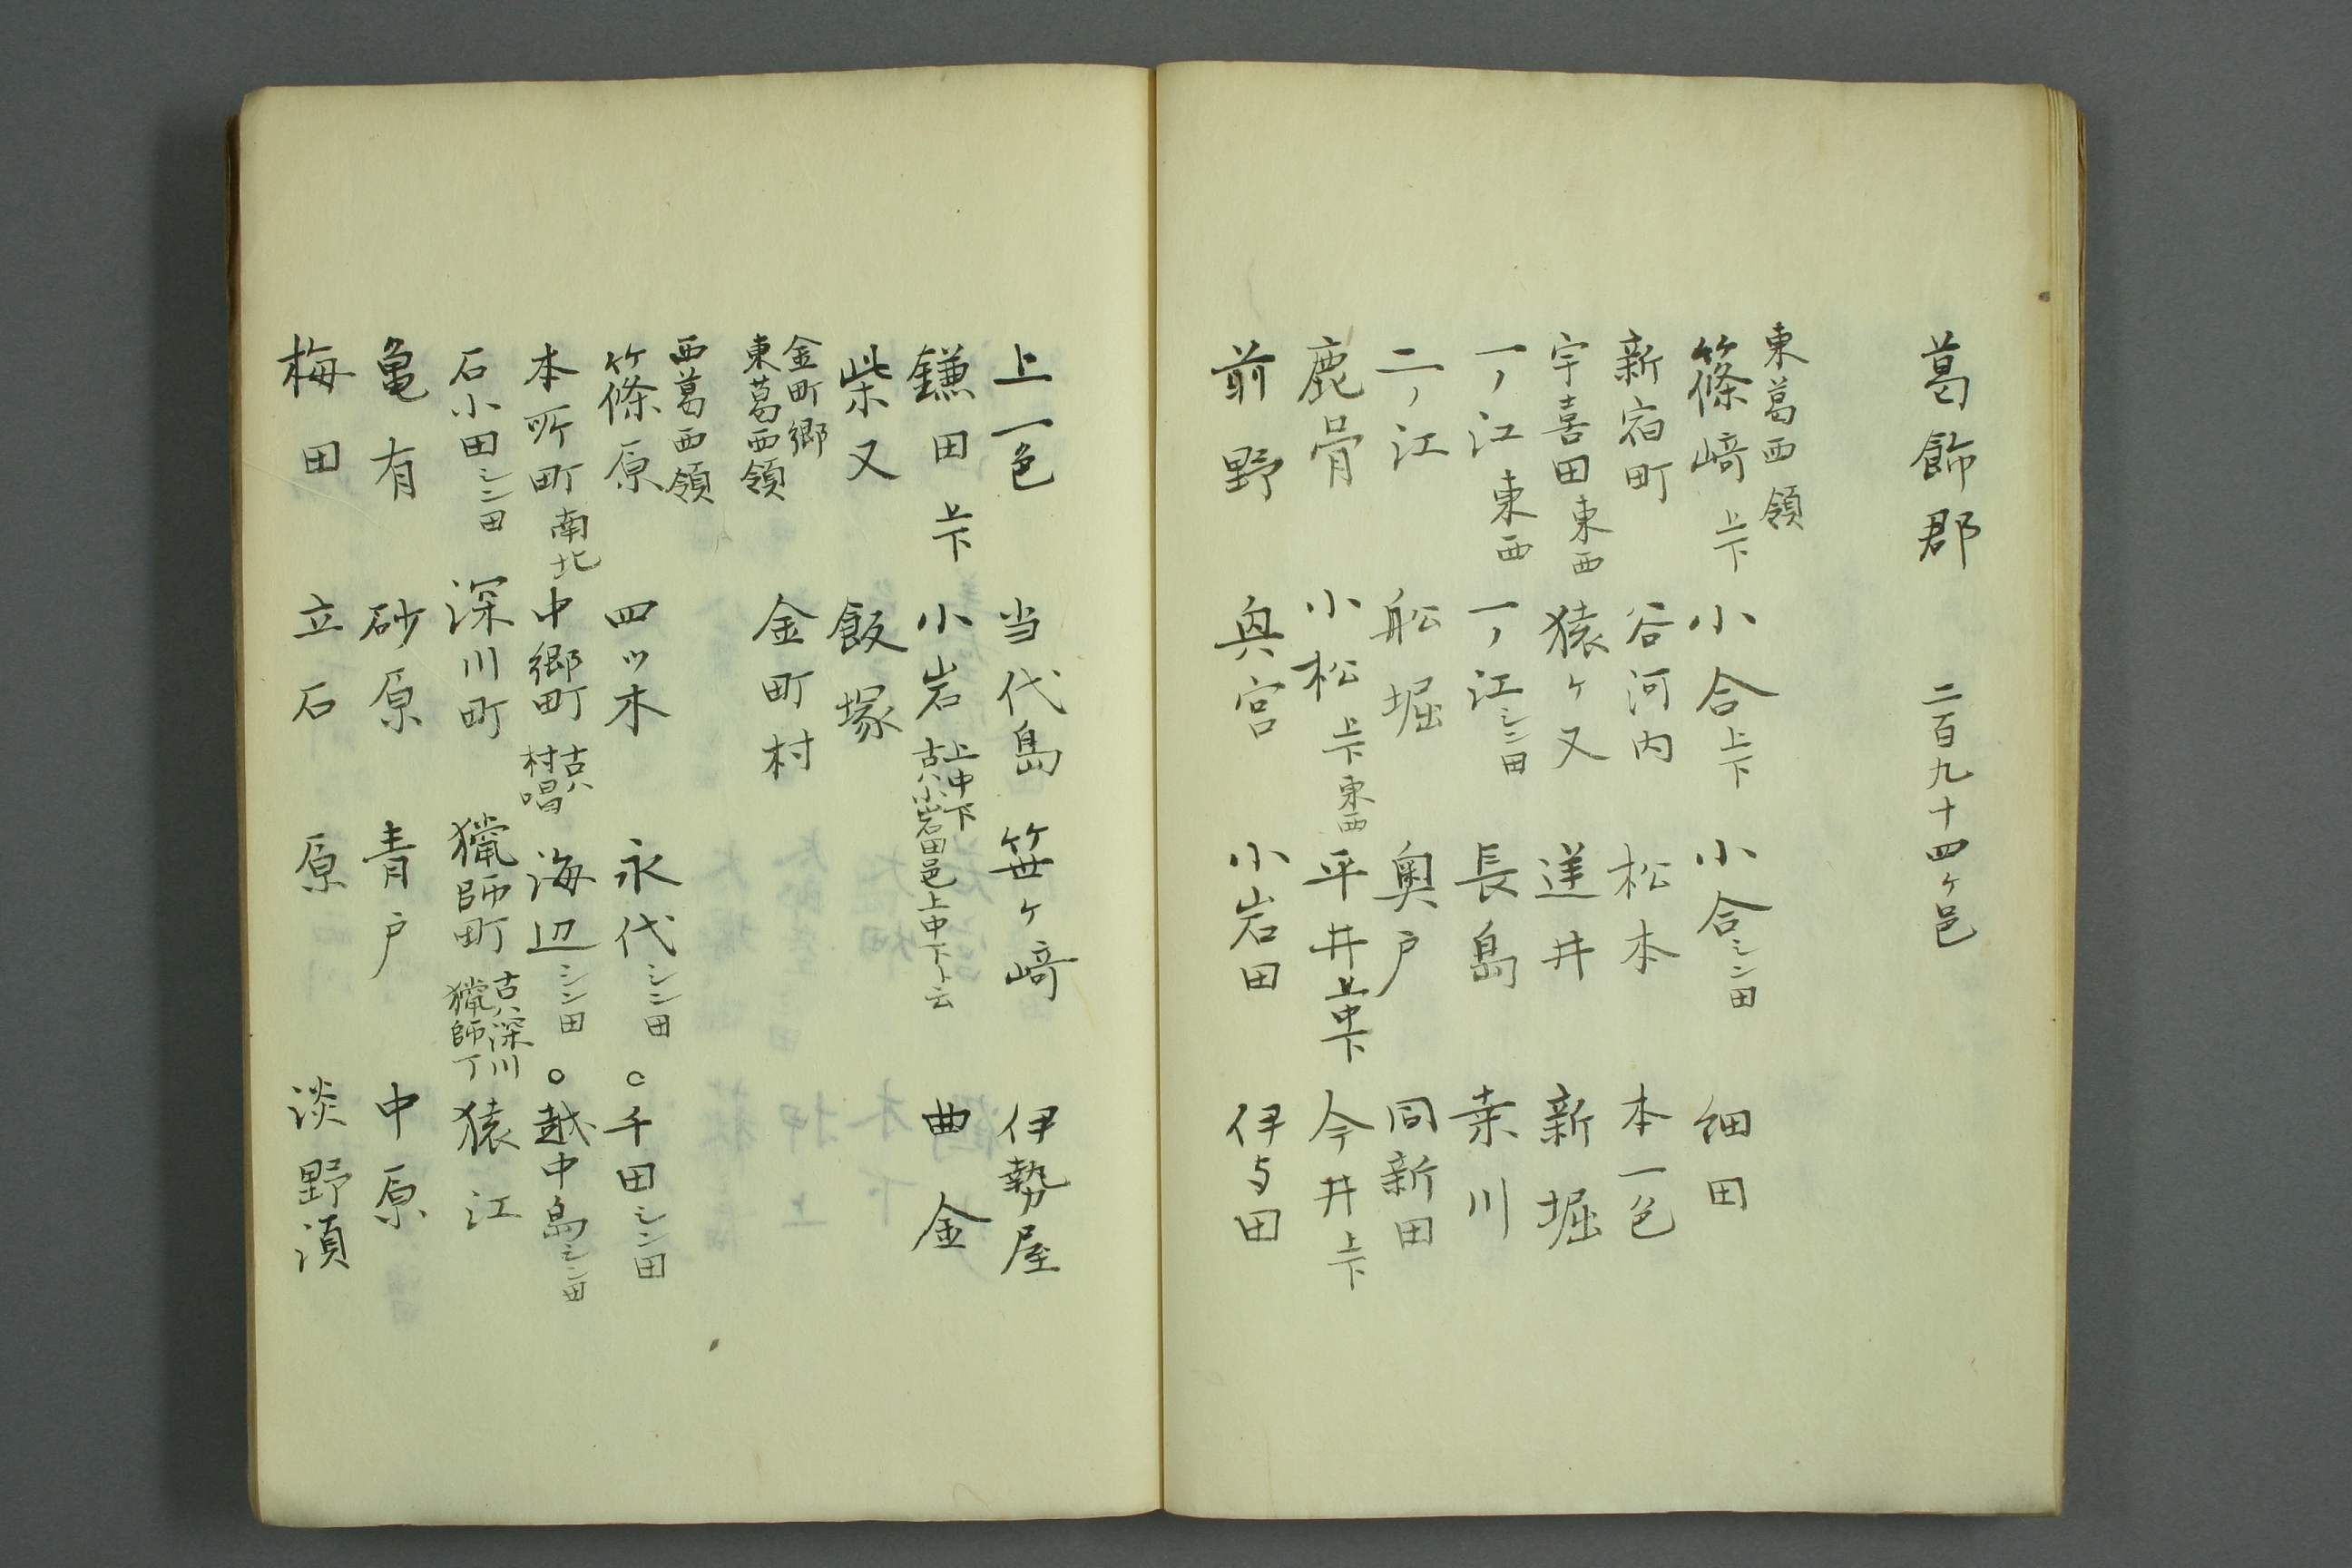 葛飾郡 二百九十四ケ邑
東葛西領
篠﨑上下 小合上下 小合シン田 細田
新宿町 谷河内 松本 本一色
宇喜田東西 猿ケ又 逆井 新堀
一ノ江東西 一ノ江シン田 長島 桒川
二ノ江 舩堀 奥戸 同新田
鹿骨 小松上下東西 平井上中下 今井上下
前野 奥宮 小岩田 伊与田
上一色 当代島 笹ケ﨑 伊勢屋
鎌田上下 小岩上中下古ハ小岩田邑上中下ト云 曲金
柴又 飯塚
金町郷
東葛西領 金町村
西葛西領
篠原 四ツ木 永代シン田 ○千田シン田
本所町南北 中郷町古ハ村唱 海辺シン田 ○越中島シン田
石小田シン田 深川町 獵師町古ハ深川獵師丁 猿江
亀有 砂原 青戸 中原
梅田 立石 原 淡野湏